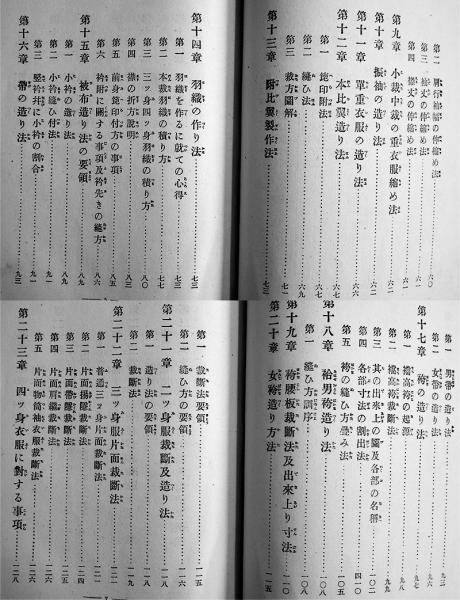 第二 男行袖幅の伸縮め法 六〇
第三 裄丈の伸縮め法 六一
第四 裾丈の伸縮め法 六一
第九章 小裁中裁の重衣服縮め法 六二
第十章 振袖の造り法 六六
第十一章 單重衣服の造り法 六七
第十二章 本比翼造り法 六七
第一 箆印附法 六七
第二 縫ひ法 六九
第三 裁方圖解 七一
第十三章 附比翼製作法 七三
第十四章 羽織の作り法 七三
第一 羽織を作るに就ての心得 七三
第二 本裁羽織の積り方 七七
第三 三ッ身四ッ身羽織の積り方 八〇
第四 襟の折方説明 八四
第五 前身箆印付方の事項 八五
第六 衿附に關する事項及衿先きの縫方 八六
第十五章 被布造り法の要領 八九
第一 小衿の造り法 八九
第二 小衿縫ひ付法 九一
第三 竪衿并に小衿の割合 九一
第十六章 帶の造り法 九三
第一 男帶の造り法 九三
第二 女帶の造り法 九六
第十七章 袴の造り法 九七
第一 襠高袴の起源 九八
第二 襠高袴裁斷法 九九
第三 其の出來上の圖及各部の名稱 一〇二
第四 各部寸法の割出法 一〇四
第五 袴の縫ひ方疊み法
第十八章 袷男袴造り法
第一 縫ひ方訓序
第十九章 袴腰板裁斷法及出來上り寸法 一一〇
第二十章 女袴造り方法
第一 裁斷法要領 一一五
第二 縫ひ方の要領
第二十一章 一ッ身服裁斷及造り法 一一八
第一 造り法の要領 一一八
第二 裁斷法 一一九
第二十二章 三ッ身服片面裁斷法 一二一
第一 普通三ッ身片面裁斷法 一二一
第二 片面揚縫裁斷法 一二四
第三 片面帶隱裁斷法 一二五
第四 片面肩繼裁斷法 一二六
第五 片面物筒袖衣服裁斷法 一二六
第二十三章 四ッ身衣服に對する事項 一二八